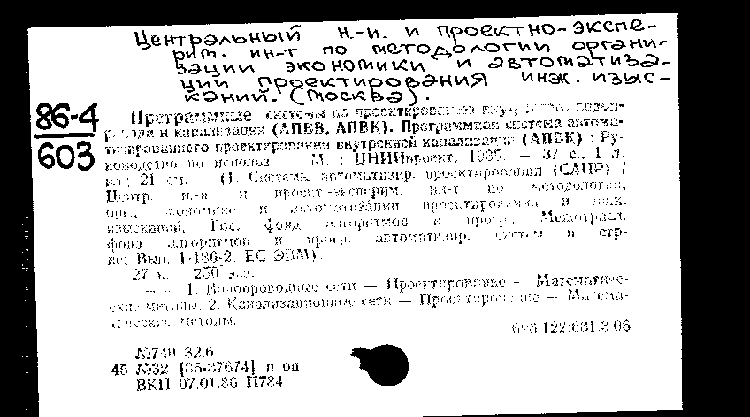 Центральный н.-и. и проектно-экспе-
рим. ин-т по методологии органи-
зации экономики и автоматиза-
ции проектирования инж. изыс-
каний. (Москва).
86-4
603
Программные системы по проектированию внутр.
и канализации (АПВВ, АПВК). Программная система автома-
тизированного проектирования внутренней канализации (АПВК) : Ру-
ководство по использ. М. : ЦНИИпроект, 1985. — 37 с., 1 л.
ил.; 21 см. — (1. Система автоматизир. проектирования (САПР) /
Центр. н.-и. и проект.-эксперим. ин-т по методологии,
орг., экономике и автоматизации проектирования и инж.
изысканий, Гос. фонд алгоритмов и прогр., Межотрасл.
фонд алгоритмов и прогр. автоматизир. систем в стр-
ве; Вып. 1-186-2. ЕС ЭВМ).
27 к. 250 экз.
— — 1. Водопроводные сети — Проектирование — Математиче-
ские методы. 2. Канализационные сети — Проектирование — Матема-
тические методы.
696.122:681.3.06
№740 32.6
45 №32 [85-37674] п ол
ВКП 07.01.86 П784